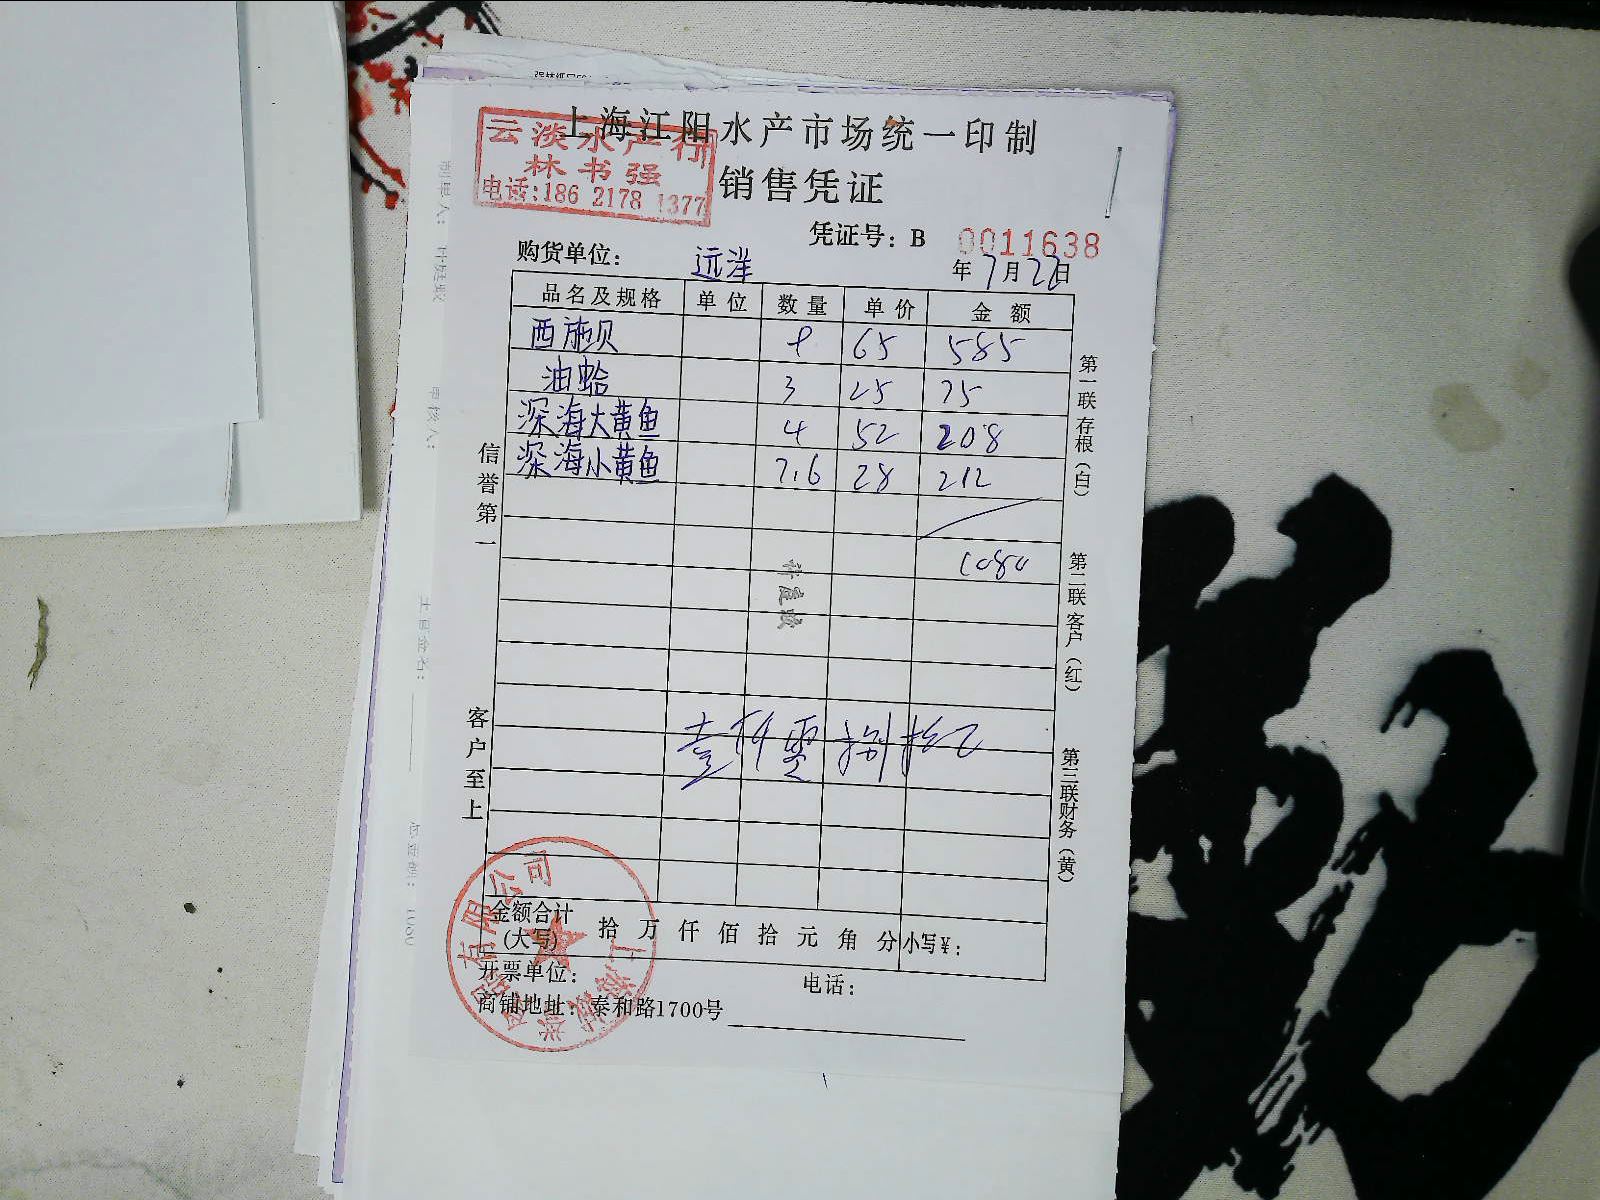 上海江阳水产市场统一印制
云淡水产行
林书强
电话:186 2178 1377
销售凭证
凭证号: B 0011638
购货单位: 远洋
年 7 月 22 日
品名及规格 单位 数量 单价 金额
西施贝 9 65 585
油蛤 3 25 75
深海大黄鱼 4 52 208
深海小黄鱼 7.6 28 212
1080
壹仟零捌拾元
信誉第一
客户至上
第一联存根(白)
第二联客户(红)
第三联财务(黄)
金额合计
(大写) 拾 万 仟 佰 拾 元 角 分 小写¥:
开票单位: 电话:
商铺地址: 泰和路1700号